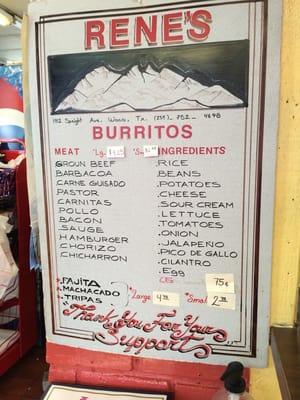 RENE'S
1912 Speight Ave. Waco, Tx. (254)-752-4698
BURRITOS
MEAT "Lg. "Sm. INGREDIENTS
GROUN BEEF
BARBACOA
CARNE GUISADO
PASTOR
CARNITAS
POLLO
BACON
SAUGE
HAMBURGER
CHORIZO
CHICHARRON
.RICE
.BEANS
.POTATOES
.CHEESE
.SOUR CREAM
.LETTUCE
.TOMATOES
.ONION
.JALAPENO
.PICO DE GALLO
.CILANTRO
.Egg
75¢
.FAJITA
.MACHACADO
.TRIPAS
"Large
"Small
"Thank You For Your
Support"